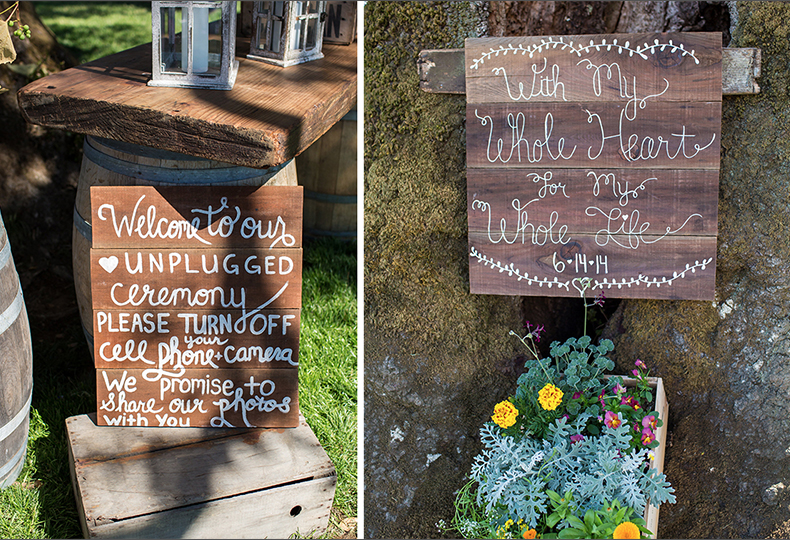 Welcome to our
UNPLUGGED
ceremony
PLEASE TURN OFF
your
cell phone + camera
We promise to
share our photos
with You
With My
Whole Heart
For My
Whole Life
6·14·14